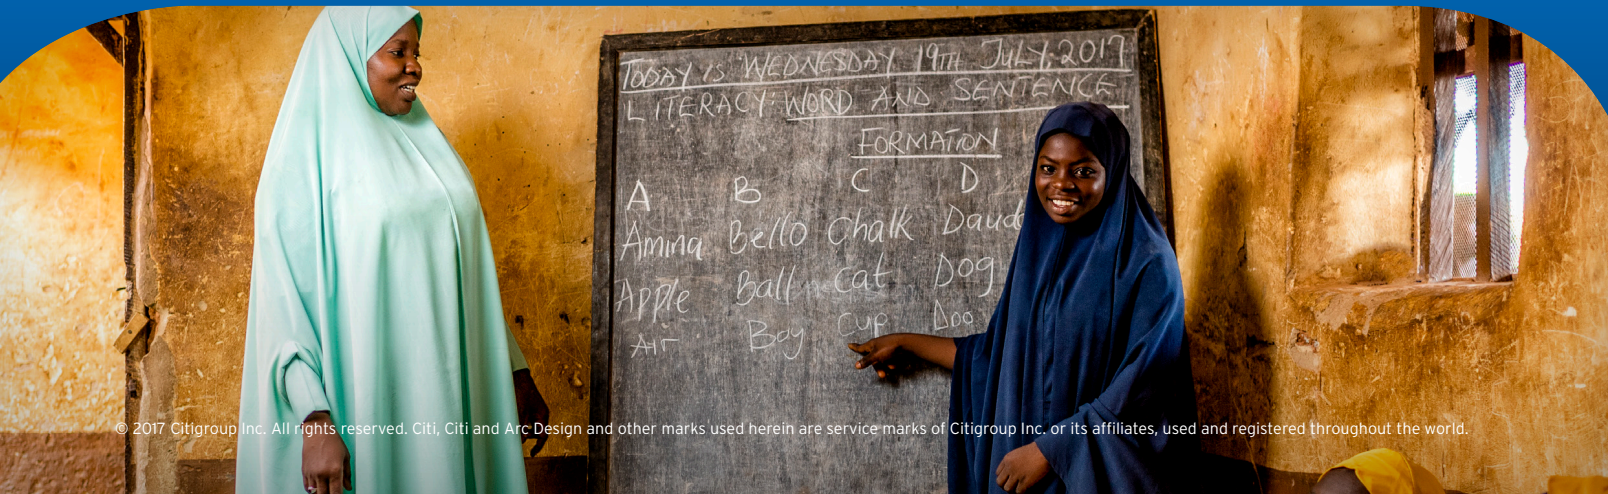 TODAY IS WEDNESDAY 19TH JULY, 2017
LITERACY: WORD AND SENTENCE
FORMATION
A B C D
Amina Bello Chalk Daud
Apple Ball Cat Dog
Air Boy Cup Doo
© 2017 Citigroup Inc. All rights reserved. Citi, Citi and Arc Design and other marks used herein are service marks of Citigroup Inc. or its affiliates, used and registered throughout the world.